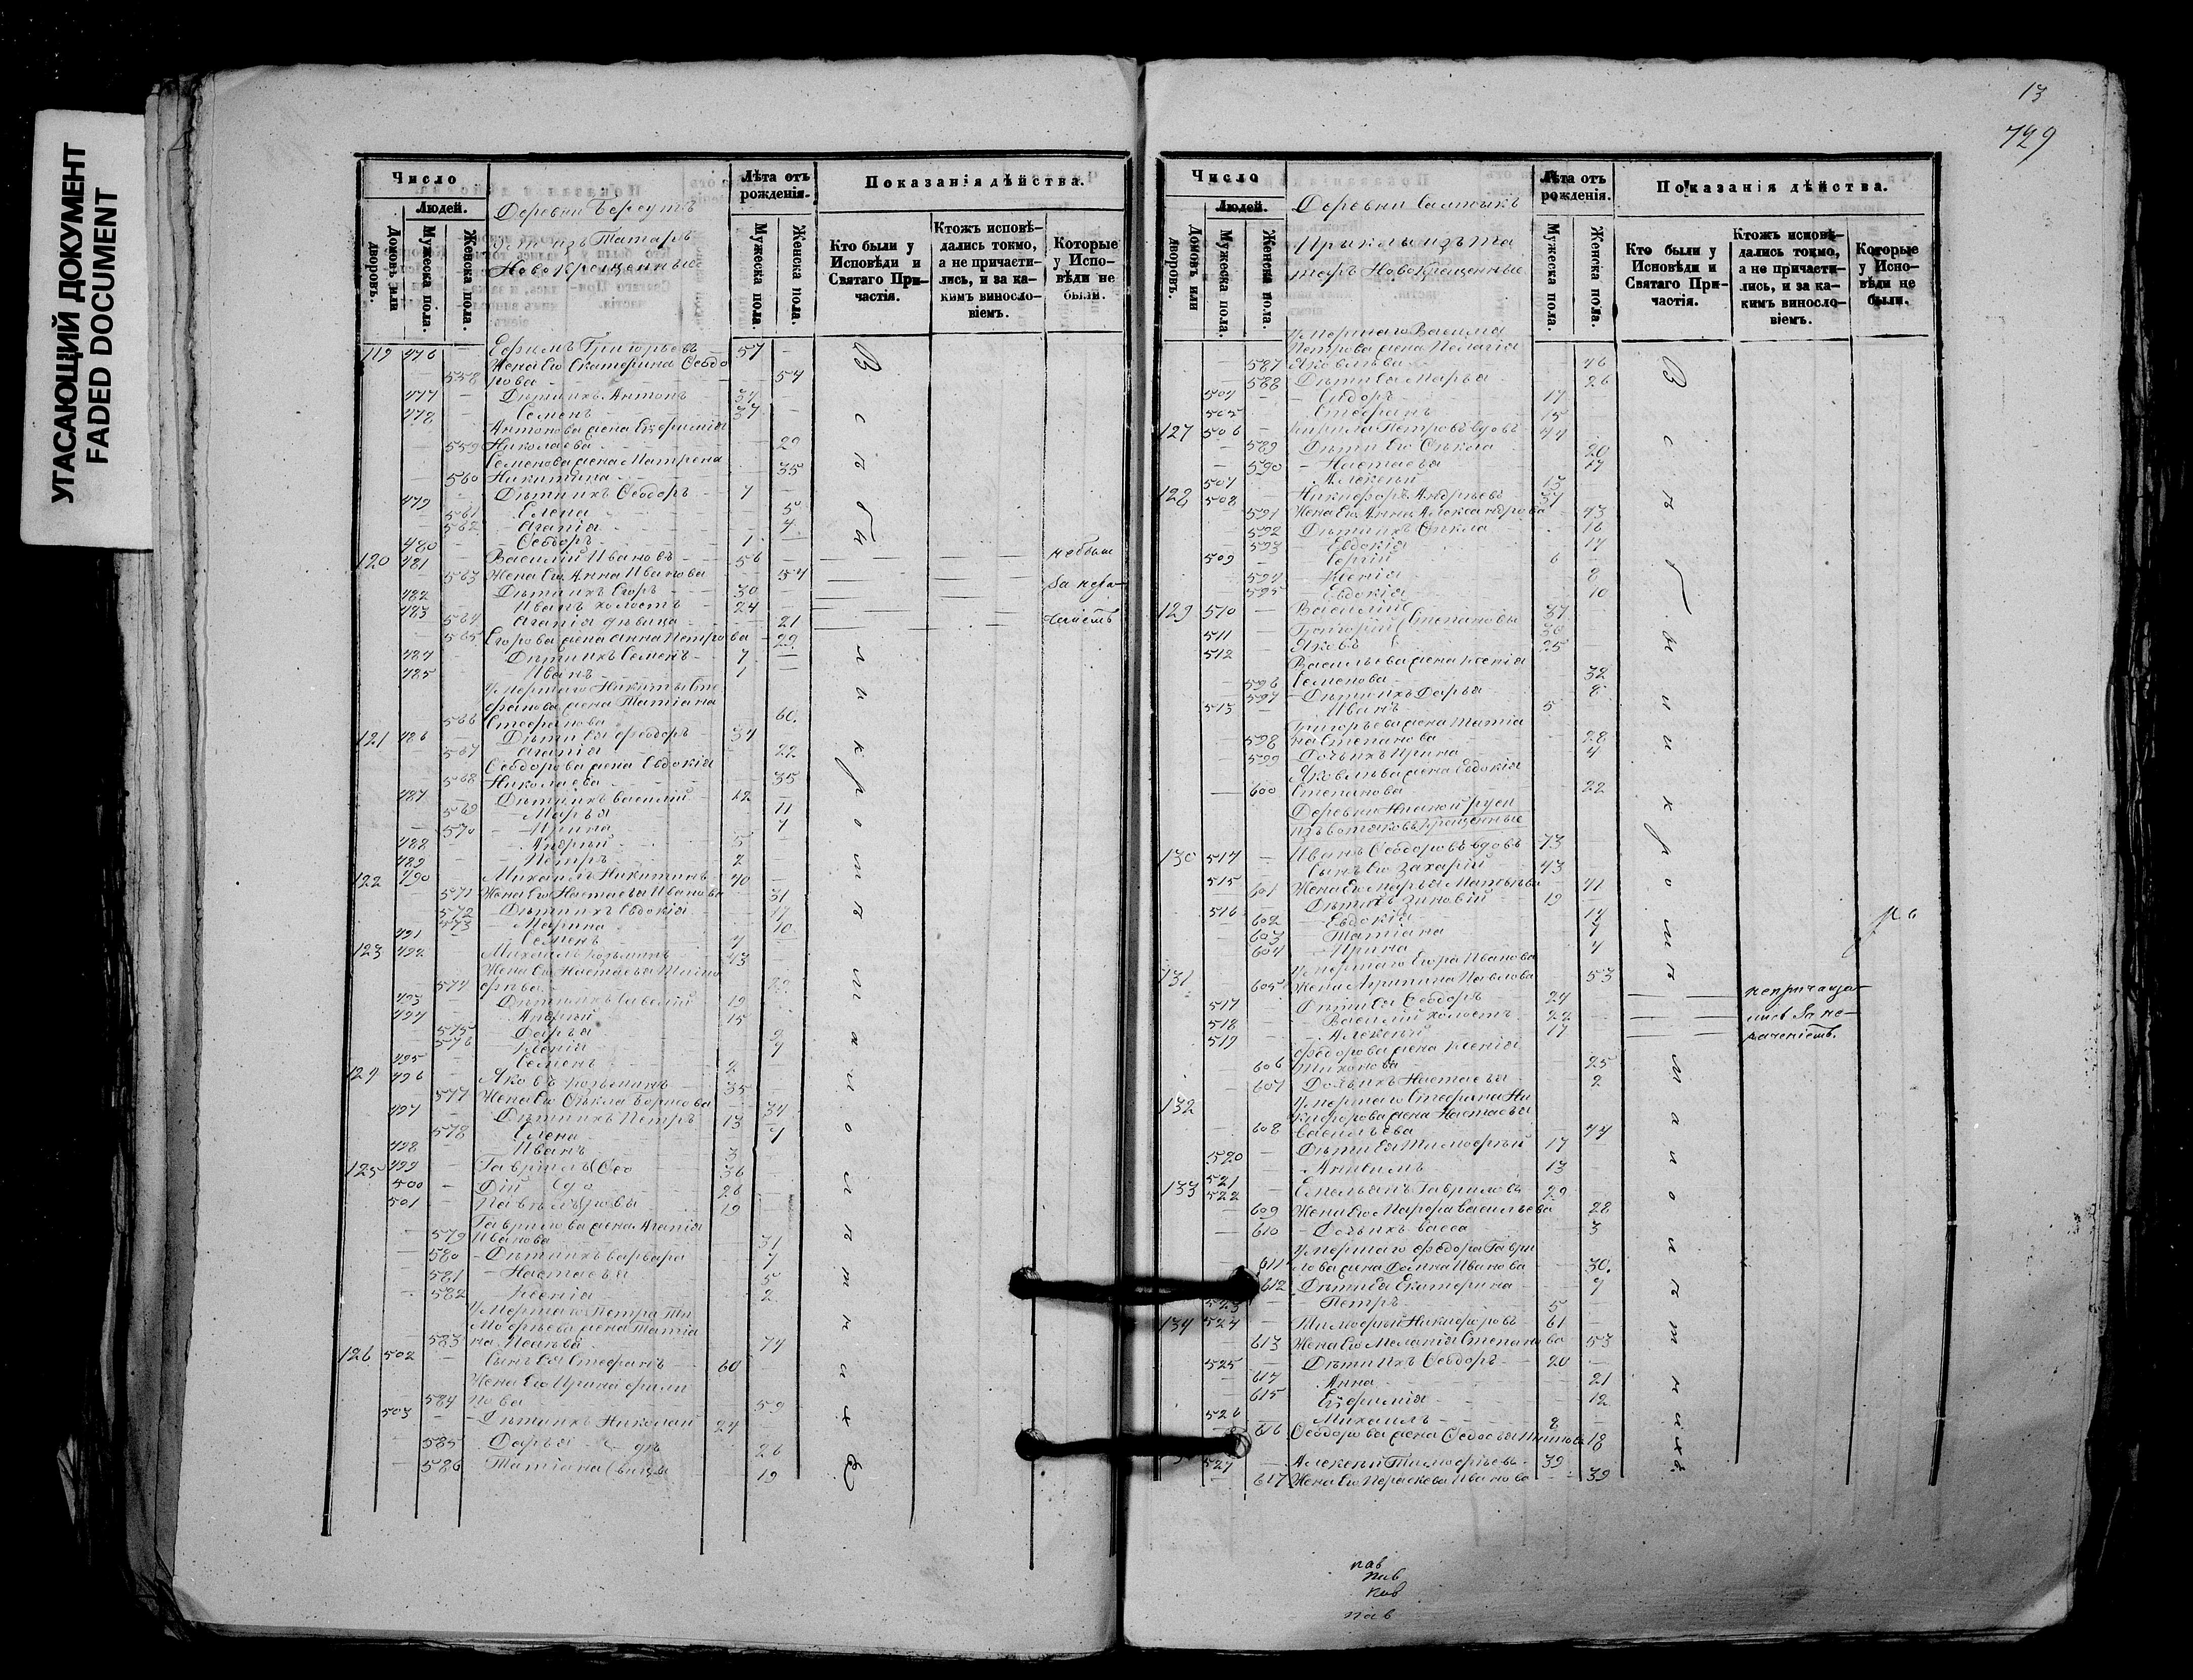 УГАСАЮЩИЙ ДОКУМЕНТ
FADED DOCUMENT
Число
Людей.
Домовъ или дворовъ.
Мужеска пола.
Женска пола.
Деревни
изъ Татаръ
Новокрещенные
Лѣта отъ рожденія.
Мужеска пола.
Женска пола.
Показанія дѣйства.
Кто были у Исповѣди и Святаго Причастія.
Ктожъ исповѣдались токмо, а не причастились, и за какимъ винословіемъ.
Которые у Исповѣди не были.
119 476 Ефимъ Григорьевъ 57
Жена Его Екатерина Ѳеодо
558 рова 54
477 Дѣти ихъ Антонъ 34
478 Семенъ 37
Антонова жена Евфимія
559 Николаева 29
Семенова жена Матрена
560 Никитина 35
479 Дѣти ихъ Ѳеодоръ 7
561 Елена 5
562 Агапія 4
480 Ѳеодоръ 1
120 481 Василій Ивановъ 56 небыли
563 Жена Его Анна Иванова 54
482 Дѣти ихъ Егоръ 30
483 Иванъ холостъ 24
564 Агапія дѣвица 21
565 Егорова жена Анна Петрова 29
484 Дѣти ихъ Семенъ 7
485 Иванъ 1
Умершаго Никиты Сте
фанова жена Татіана
566 Стефанова 60
121 486 Дѣти Ея Ѳеодоръ 34
567 Агапія 22
Ѳеодорова жена Евдокія
568 Николаева 35
487 Дѣти ихъ Василій 12
569 Марья 11
570 Ирина 7
488 Андрей 5
489 Петръ 2
122 490 Михаилъ Никитинъ 40
571 Жена Его Настасья Иванова 31
572 Дѣти ихъ Евдокія 17
573 Марина 10
491 Семенъ 4
123 492 Михаилъ Козьминъ 43
Жена Его Настасья Тимо
574 фѣева
493 Дѣти ихъ Савелій 19
494 Андрей 15
575 Дарья 9
576 Ксенія
495 Семенъ 2
124 496 Яковъ Козьминъ 35
577 Жена Его Ѳекла Борисова 34
497 Дѣти ихъ Петръ 13
578 Елена 7
498 Иванъ 3
125 499 Гаврилъ Ѳео 36
500 Дій до 26
501 Павелъ ровы 19
Гаврилова жена Агапія
579 Иванова 31
580 Дѣти ихъ Варвара 7
581 Настасья 5
582 Ксенія 2
Умершаго Петра Ти
мофѣева жена Татіа
583 на 74
126 502 Сынъ Ея Стефанъ 60
Жена Его Ирина Фили
584 пова 59
503 Дѣти ихъ Николай 24
585 Дарья дѣ 26
586 Татіана вицы 19
В с ѣ б ы л и к р о м ѣ м а л о л ѣ т н и х ъ
13
729
Число
Людей.
Домовъ или дворовъ.
Мужеска пола.
Женска пола.
Деревни Салтыкъ
изъ Та
таръ Новокрещенные
Лѣта отъ рожденія.
Мужеска пола.
Женска пола.
Показанія дѣйства.
Кто были у Исповѣди и Святаго Причастія.
Ктожъ исповѣдались токмо, а не причастились, и за какимъ винословіемъ.
Которые у Исповѣди не были.
Умершаго Василія
Петрова жена Пелагія
587 Яковлѣва 46
588 Дѣти Ея Марья 26
504 Ѳеодоръ 17
505 Стефанъ 15
127 506 Кирила Петровъ вдовъ 44
589 Дѣти Его Ѳекла 20
590 Настасья 17
507 Алексѣй 13
128 508 Никифоръ Андрѣевъ 37
591 Жена Его Анна Александрова 43
592 Дѣти ихъ Ѳекла 16
593 Евдокія 14
509 Сергій 6
594 Ксенія 8
595 Евдокія 10
129 510 Василій 37
511 Григорій Степановы 30
512 Яковъ 25
Васильева жена Ксенія
596 Семенова 32
597 Дѣти ихъ Дарья 8
513 Иванъ 5
Григорьева жена Татіа
598 на Степанова 28
599 Дочь ихъ Ирина 4
Яковлѣва жена Евдокія
600 Степанова 22
Деревни
изъ вотяковъ крещенные
130 514 Иванъ Ѳеодоровъ вдовъ 73
515 Сынъ Его Захарій 43
601 Жена Его Марья Матвѣева 41
516 Дѣти ихъ Зиновій 19
602 Евдокія 14
603 Татіана 7
604 Ирина 4
Умершаго Егора Иванова
131 605 Жена Агрипина Павлова 53
517 Дѣти Ея Ѳеодоръ 24
518 Василій холостъ 22
519 Алексѣй 17
Ѳедорова жена Ксенія
606 Тихонова 25
607 Дочь ихъ Настасья 2
132 Умершаго Стефана Ни
кифорова жена Настасья
608 Васильева 44
520 Дѣти Ея Тимофѣй 17
521 Анѳимъ 13
133 522 Емельянъ Гавриловъ 29
609 Жена Его Марфа Васильева 28
610 Дочь ихъ Васса 3
Умершаго Ѳедора Гаври
611 лова жена Домна Иванова 30
612 Дѣти Ея Екатерина 9
523 Петръ 5
134 524 Тимофѣй Никифоровъ 61
613 Жена Его Меланія Степанова 53
525 Дѣти ихъ Ѳеодоръ 20
614 Анна 21
615 Евфимія 12
526 Михаилъ 8
616 Ѳеодорова жена Ѳедосья Титова 18
527 Алексѣй Тимофѣевъ 39
617 Жена Его Параскева Иванова 39
В с ѣ б ы л и к р о м ѣ м а л о л ѣ т н и х ъ